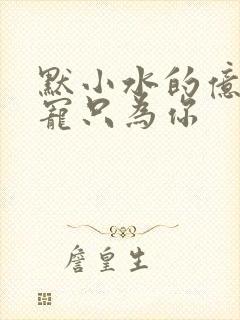 默小水的億
寵只為你
詹皇生